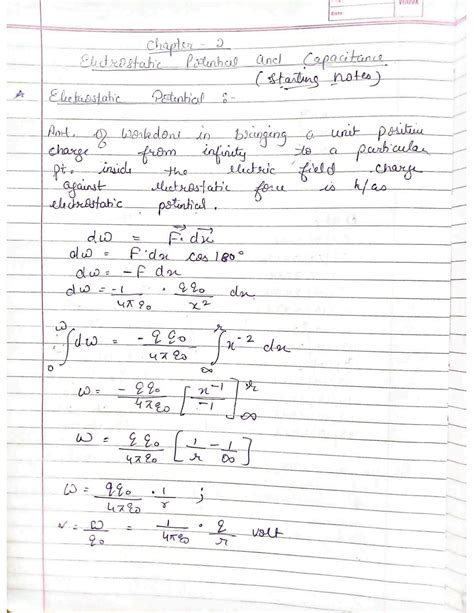 Chapter - 2
Electrostatic Potential and Capacitance
(starting notes)
Electrostatic Potential :-
Amt. of workdone in bringing a unit positive
charge from infinity to a particular
pt. inside the electric field charge
against electrostatic force is k/as
electrostatic potential.
dω = F⃗·dx⃗
dω = F·dx cos 180°
dω = -F dx
dω = -1/4πε₀ · qq₀/x² dx
∫₀^ω dω = -qq₀/4πε₀ ∫_∞^r x⁻² dx
ω = -qq₀/4πε₀ [x⁻¹/-1]_∞^r
ω = qq₀/4πε₀ [1/r - 1/∞]
ω = qq₀/4πε₀ · 1/r ;
v = ω/q₀ = 1/4πε₀ · q/r volt